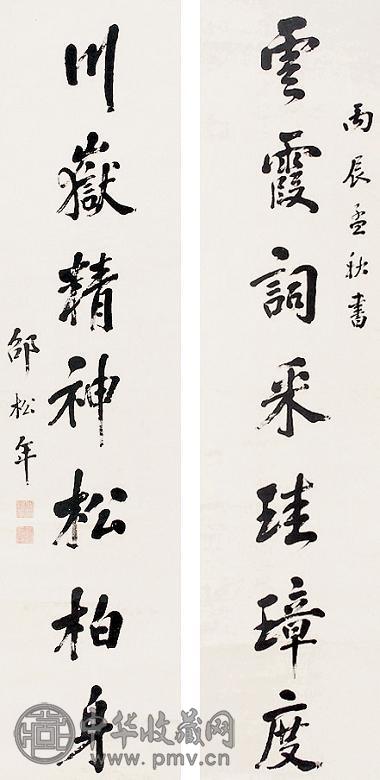 丙辰孟秋書
雲霞詞采珪璋度
川嶽精神松柏身
邵松年
中华收藏网
www.pmv.cn